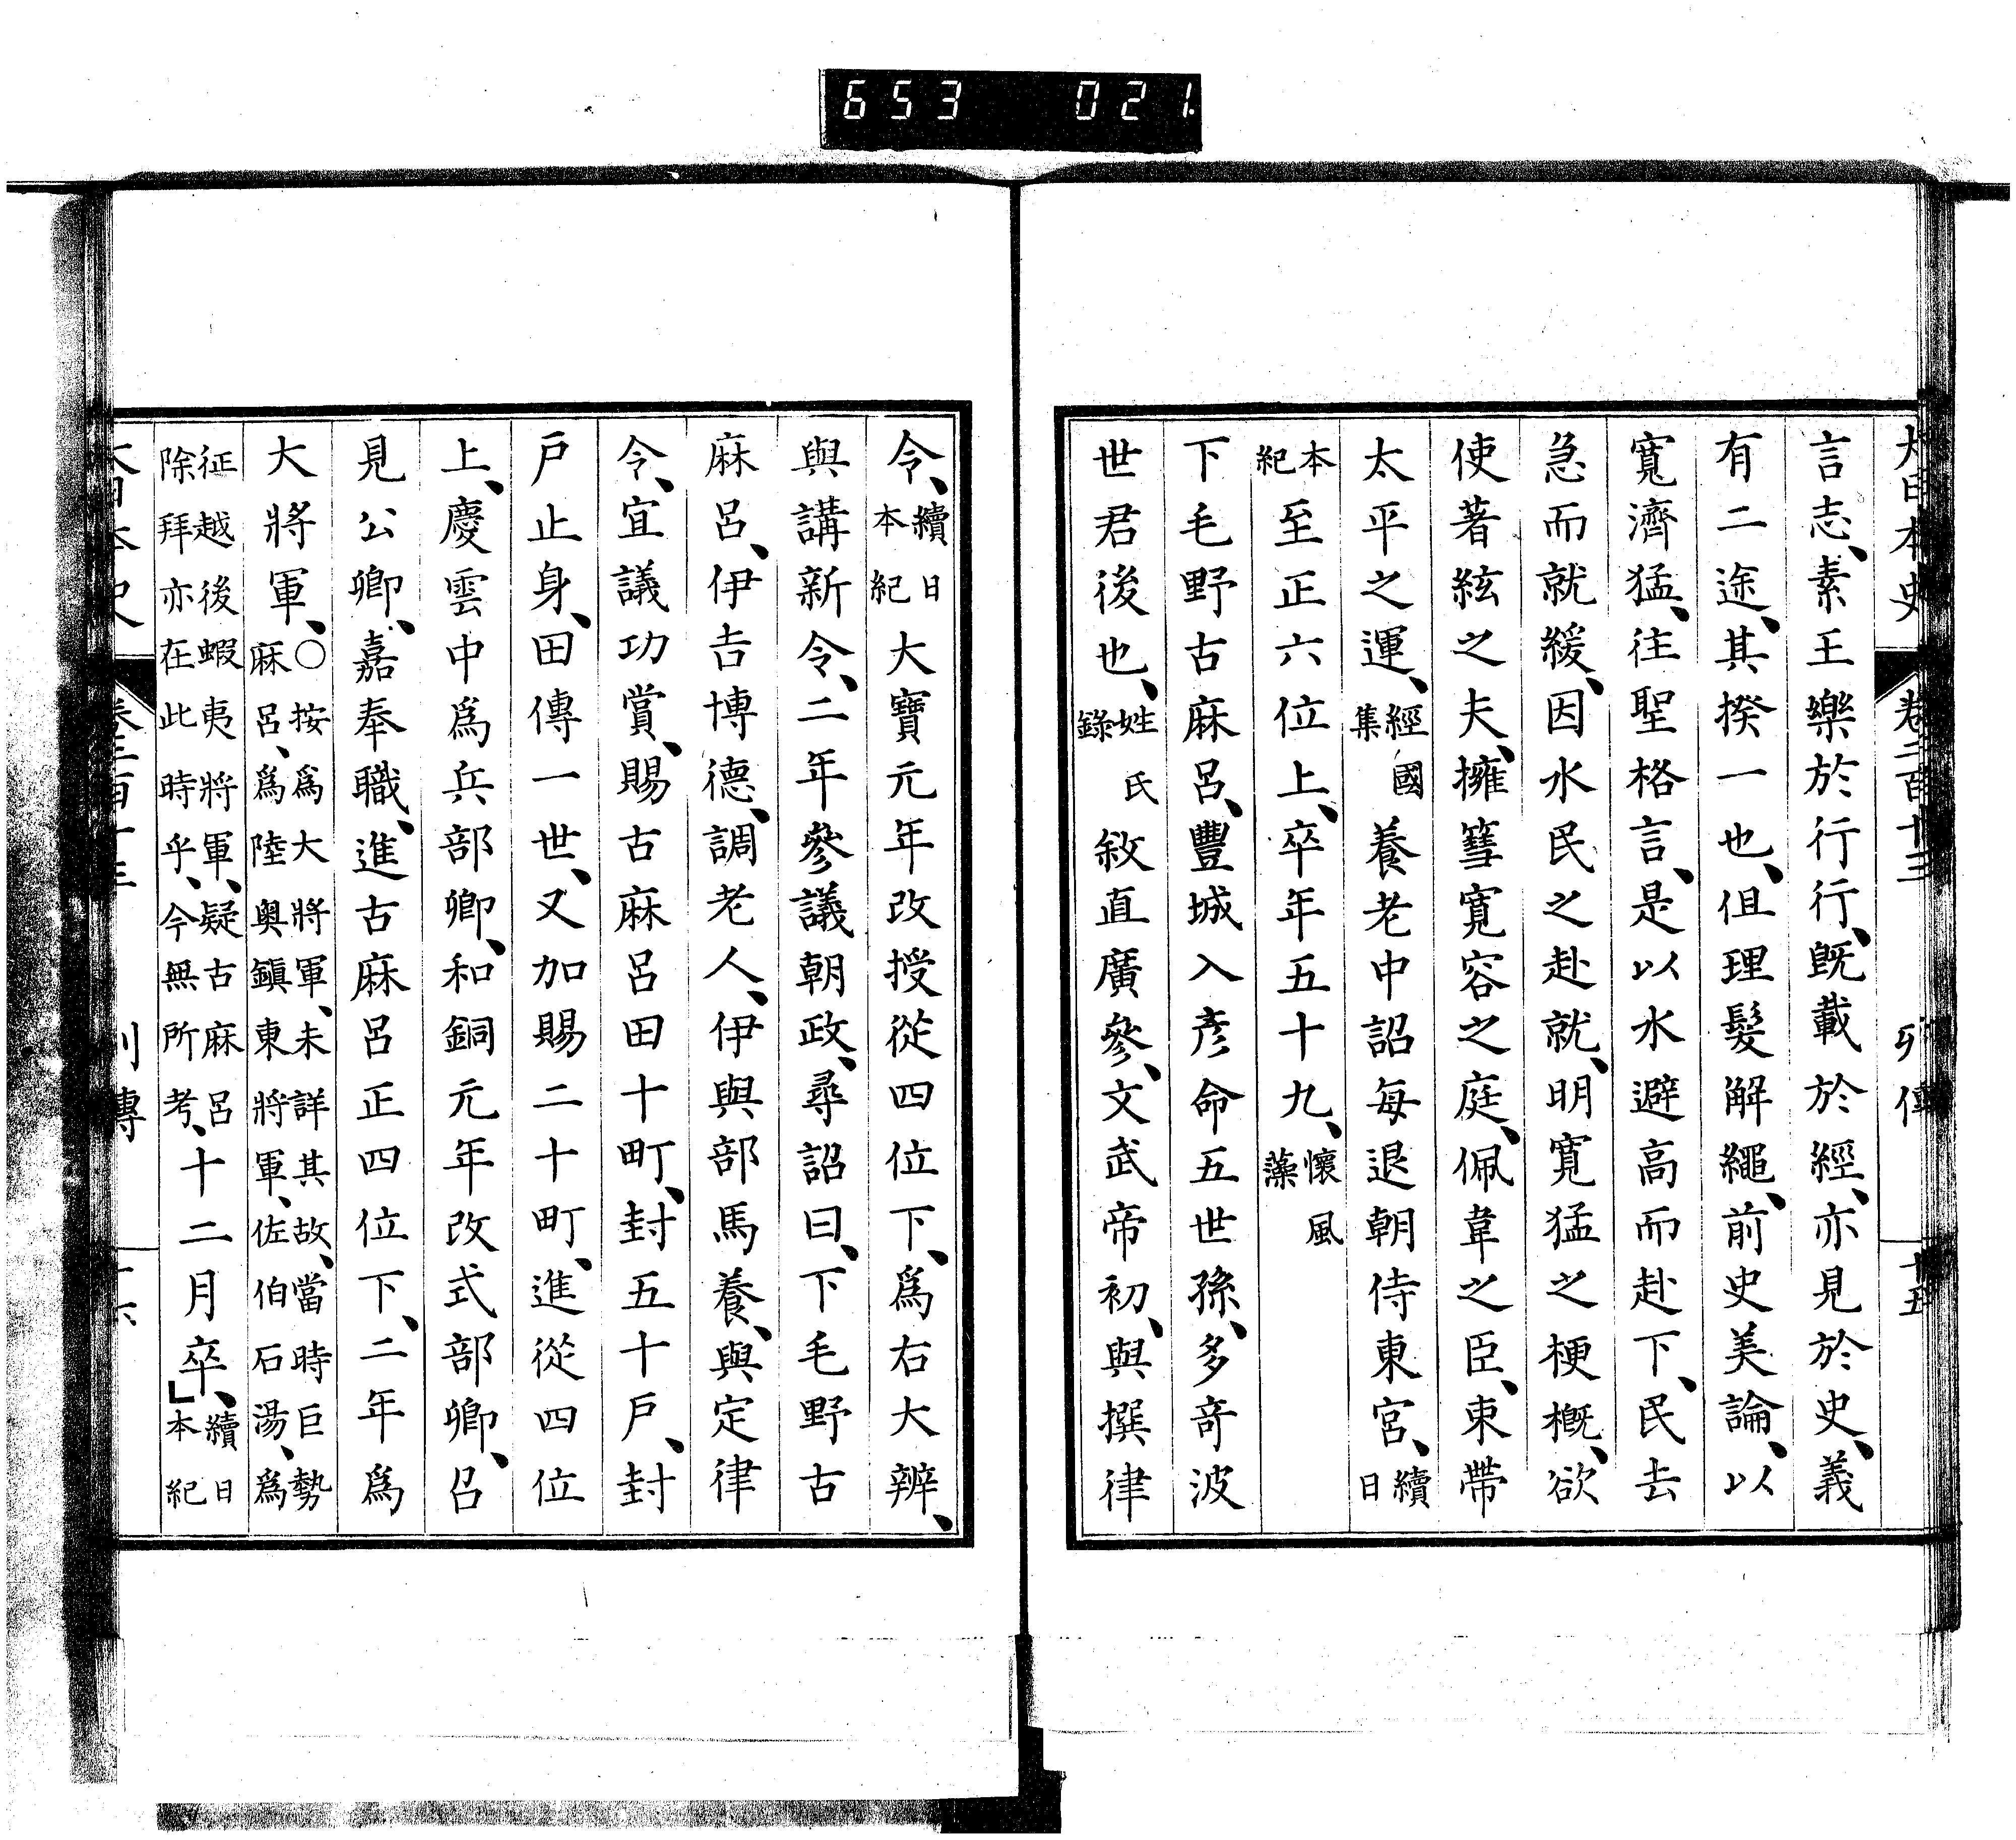 653 021
大日本史 卷二百十三 列傳 十五
言志、素王樂於行行、旣載於經、亦見於史、義
有二途、其揆一也、但理髮解繩、前史美論、以
寬濟猛、往聖格言、是以水避高而赴下、民去
急而就緩、因水民之赴就、明寬猛之梗槪、欲
使著絃之夫、擁篲寬容之庭、佩韋之臣、束帶
太平之運、經國集養老中詔每退朝侍東宮、續日
本紀至正六位上、卒年五十九、懷風藻
下毛野古麻呂、豐城入彥命五世孫、多奇波
世君後也、姓氏錄敘直廣參、文武帝初、與撰律
令、續日本紀大寶元年改授從四位下、爲右大辨、
與講新令、二年參議朝政、尋詔曰、下毛野古
麻呂、伊吉博德、調老人、伊與部馬養、與定律
令、宜議功賞、賜古麻呂田十町、封五十戶、封
戶止身、田傳一世、又加賜二十町、進從四位
上、慶雲中爲兵部卿、和銅元年改式部卿、呂
見公卿、嘉奉職、進古麻呂正四位下、二年爲
大將軍、○按爲大將軍、未詳其故、當時巨勢麻呂、爲陸奧鎭東將軍、佐伯石湯、爲
征越後蝦夷將軍、疑古麻呂除拜亦在此時乎、今無所考、十二月卒、續日本紀
大日本史 卷二百十三 列傳 十六